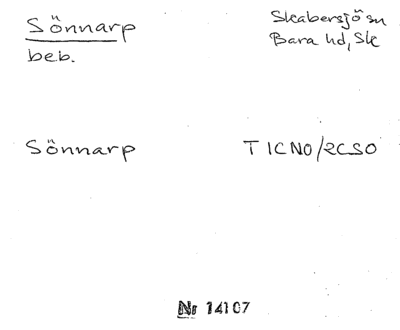 Sönnarp
Skabersjö sn
beb.
Bara hd, Sk
Sönnarp
T 1CNO/2CSO
Nr 14107